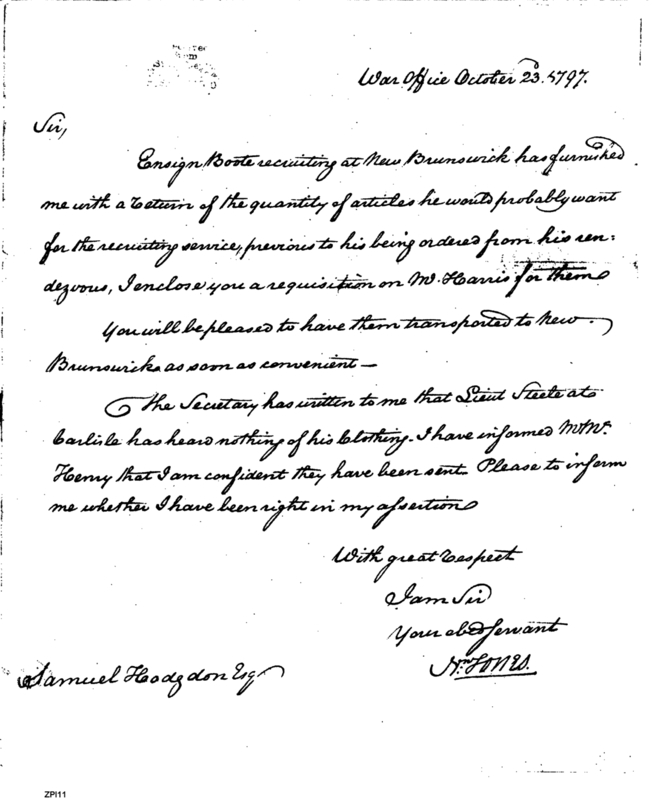 War Office October 23d. 1797.
Sir,
Ensign Boote recruiting at New Brunswick has furnished
me with a Return of the quantity of articles he would probably want
for the recruiting service, previous to his being ordered from his ren:
dezvous, I enclose you a requisition on Mr. Harris for them
You will be pleased to have them transported to New
Brunswick as soon as convenient —
The Secretary has written to me that Lieut Steele at
Carlisle has heard nothing of his Clothing. I have informed Mr.
Henry that I am confident they have been sent. Please to inform
me whether I have been right in my assertion
With great respect
I am Sir
Your obed servant
Wm JONES.
Samuel Hodgdon Esqr
ZPI11